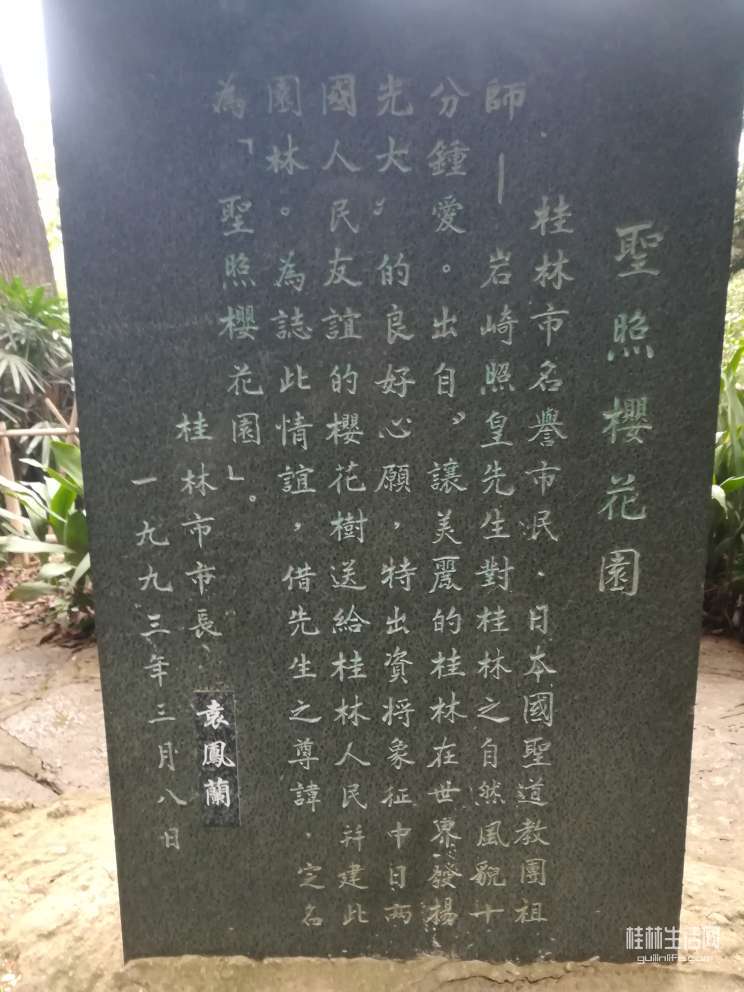 聖照櫻花園
桂林市名譽市民、日本國聖道教團祖
師—岩崎照皇先生對桂林之自然風貌十
分鍾愛。出自"讓美麗的桂林在世界發揚
光大"的良好心願，特出資將象征中日兩
國人民友誼的櫻花樹送給桂林人民并建此
園林。為誌此情誼，借先生之尊諱，定名
為「聖照櫻花園」。
桂林市市長、袁鳳蘭
一九九三年三月八日
桂林生活网
guilinlife.com